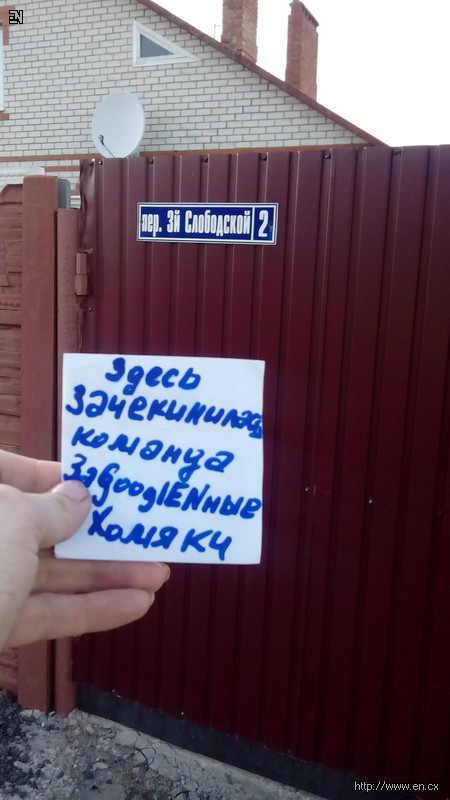 EN
пер. 3й Слободской 2
Здесь
Зачекинилась
команда
ЗаGooglENные
Хомяки
http://www.en.cx